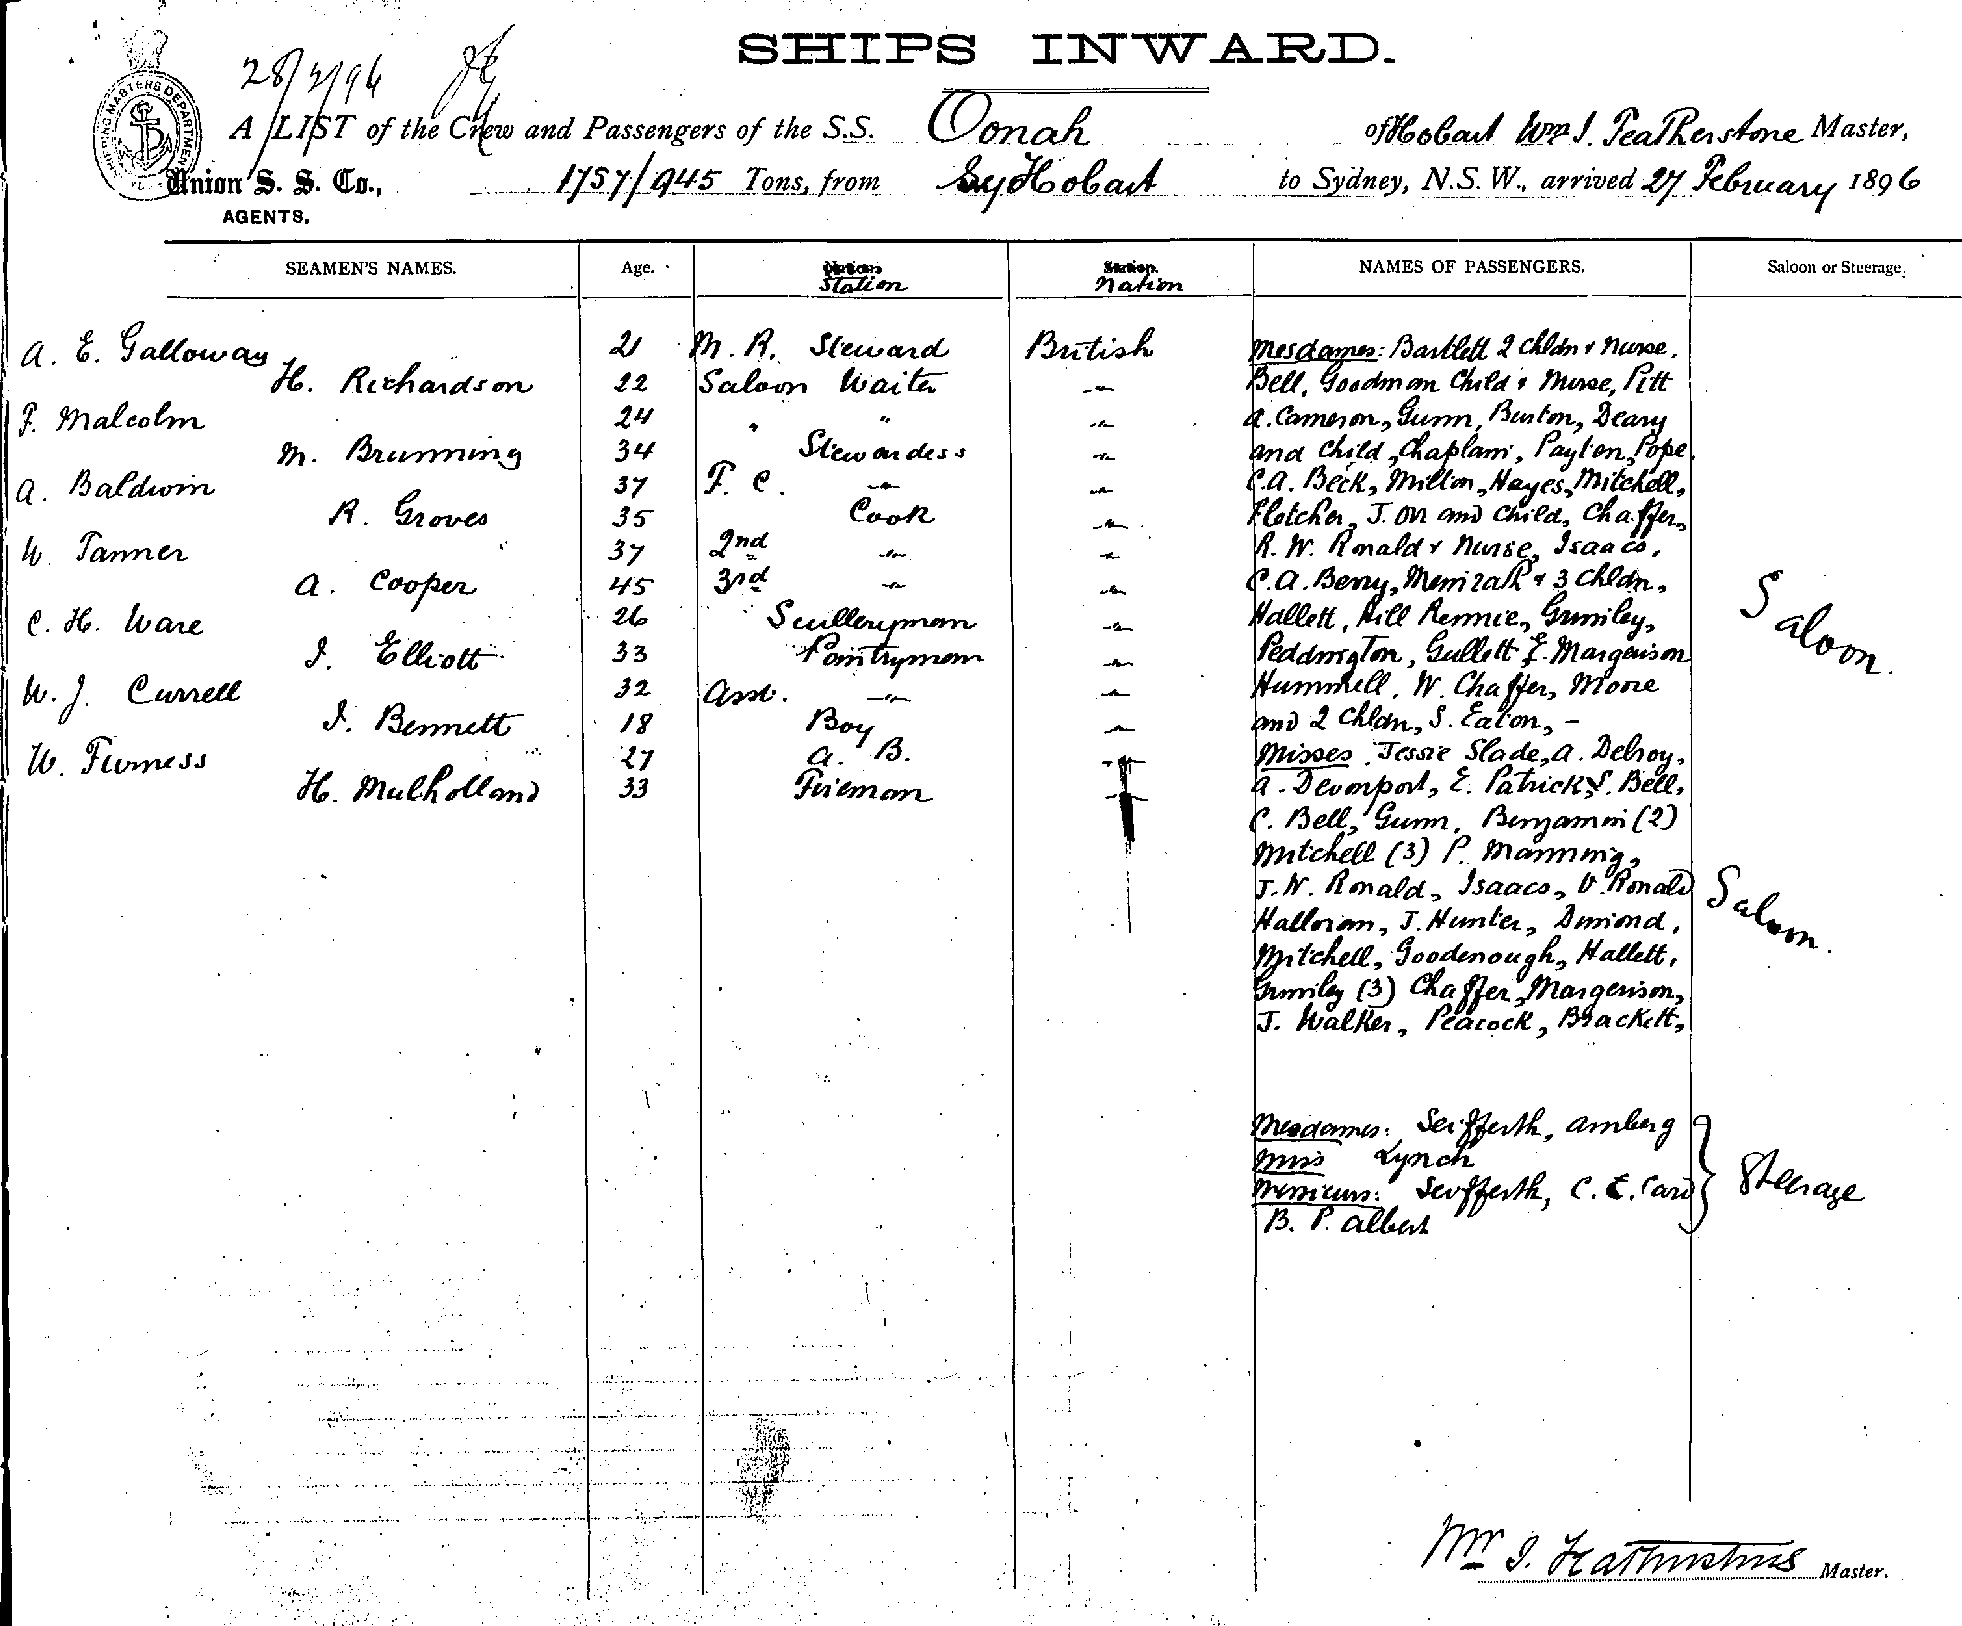 SHIPS INWARD.
28/2/96
SHIPPING MASTERS DEPARTMENT
A LIST of the Crew and Passengers of the S.S. Oonah of Hobart Wm J. Featherstone Master,
Union S. S. Co., 1757/945 Tons, from Hobart to Sydney, N.S.W., arrived 27 February 1896
AGENTS.
SEAMEN'S NAMES. Age. Station Nation NAMES OF PASSENGERS. Saloon or Steerage.
A. E. Galloway 21 M. R. Steward British Mesdames: Bartlett 2 Chldn & Nurse,
H. Richardson 22 Saloon Waiter -"- Bell, Goodman Child & Nurse, Pitt
F. Malcolm 24 " " -"- A. Cameron, Gunn, Burton, Deary
M. Brunning 34 Stewardess -"- and Child, Chaplain, Payton, Pope
A. Baldwin 37 F. C. -"- -"- C. A. Beck, Milton, Hayes, Mitchell,
R. Groves 35 Cook -"- Fletcher, J. Orr and Child, Chaffer,
W. Tanner 37 2nd -"- -"- R. W. Ronald & Nurse, Isaacs,
A. Cooper 45 3rd -"- -"- C. A. Berry, & 3 Chldn,
C. H. Ware 26 Sculleryman -"- Hallett, Hill Rennie, Grimley,
J. Elliott 33 Pantryman -"- Peddington, Gullett E. Margerison
W. J. Currell 32 Asst. -"- -"- Hummell, W. Chaffer, Moore
J. Bennett 18 Boy -"- and 2 Chldn, S. Eaton, -
W. Furness 27 A. B. -"- Misses Jessie Slade, A. Delroy,
H. Mulholland 33 Fireman -"- A. Devonport, E. Patrick, S. Bell,
C. Bell, Gunn, Benjamin (2)
Mitchell (3) P. Manning,
J. W. Ronald, Isaacs, V. Ronald
Halloran, J. Hunter, Dimond,
Mitchell, Goodenough, Hallett,
Grimley (3) Chaffer, Margerison,
J. Walker, Peacock, Brackett,
Saloon.
Saloon.
Mesdames: Seifferth, Amberg
Miss Lynch
Messieurs: Seifferth, C. E. Card
B. P. Albert
Steerage
Wm J. Featherstone Master.